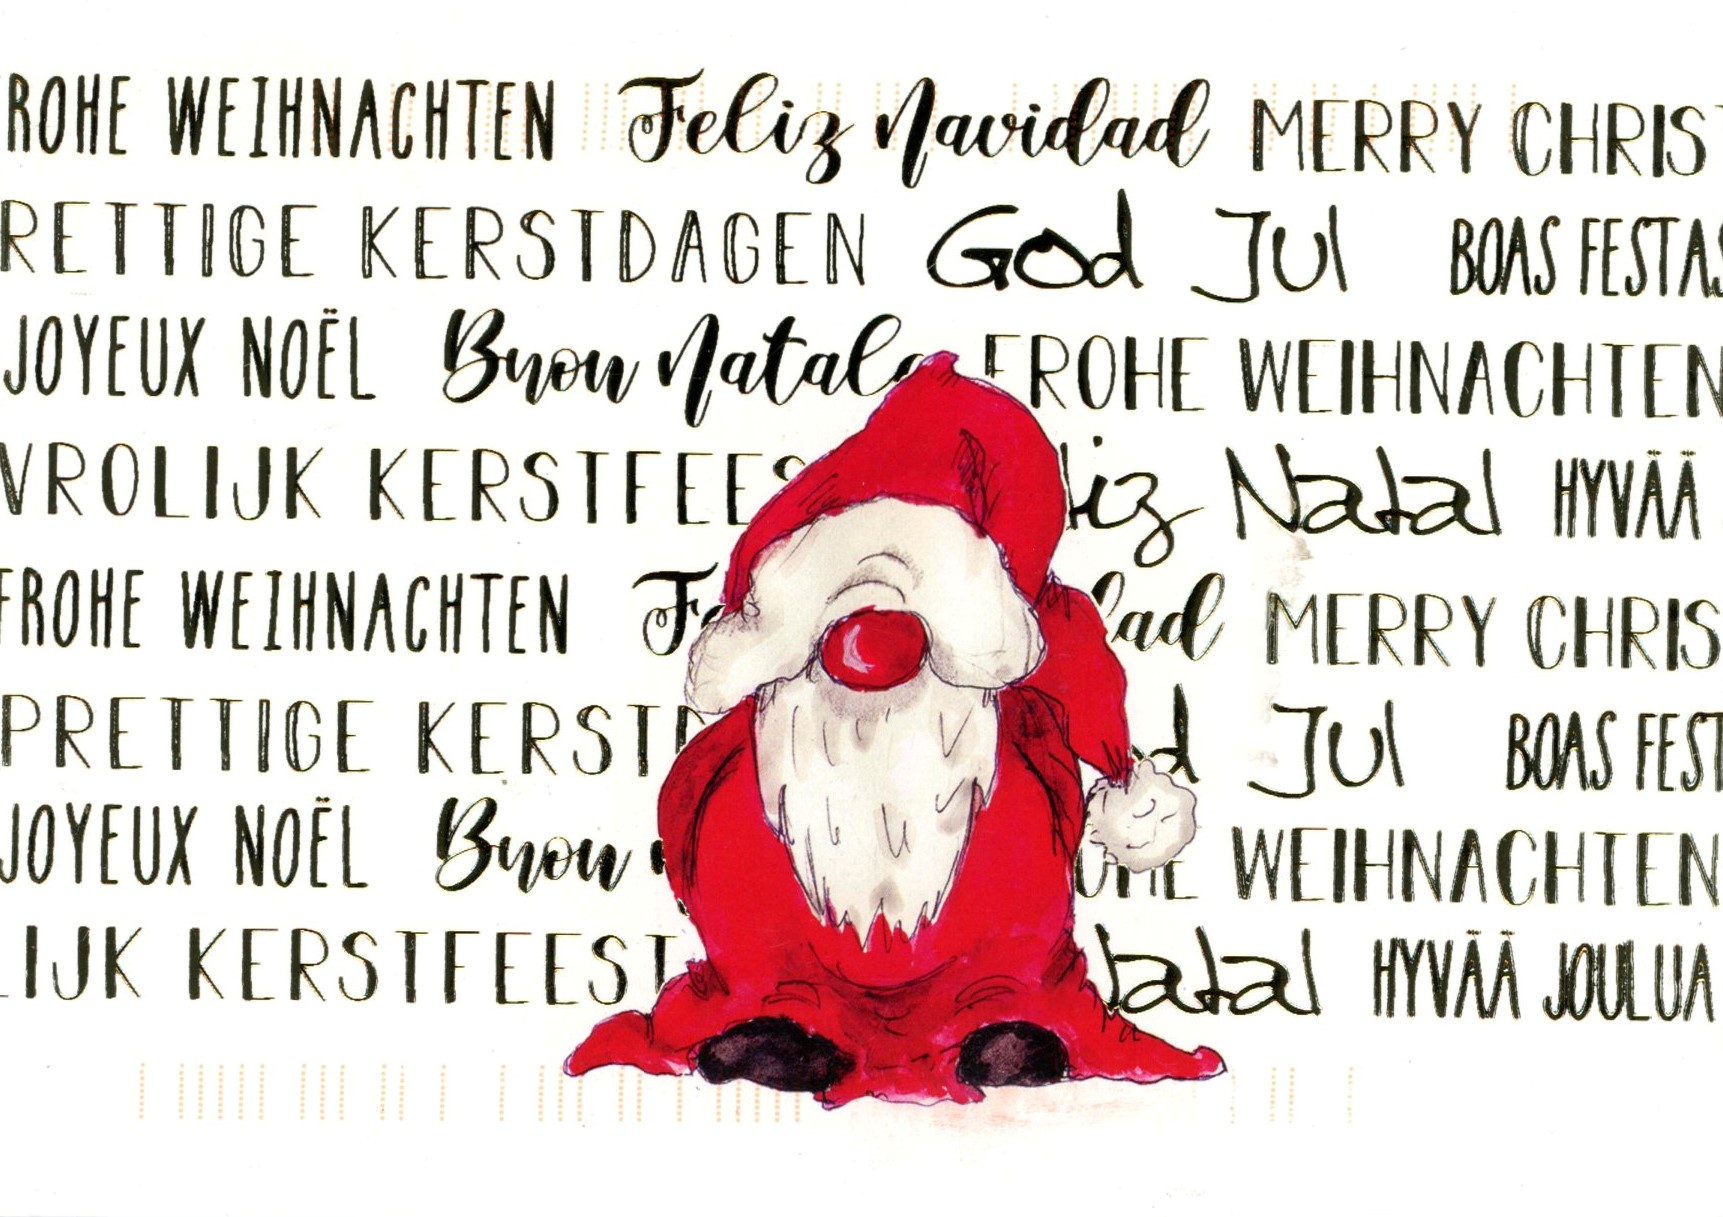 FROHE WEIHNACHTEN Feliz Navidad MERRY CHRIST
PRETTIGE KERSTDAGEN God Jul BOAS FESTAS
JOYEUX NOËL Buon Natale FROHE WEIHNACHTEN
VROLIJK KERSTFEES liz Natal HYVÄÄ
FROHE WEIHNACHTEN Fe dad MERRY CHRIS
PRETTIGE KERSTD d Jul BOAS FEST
JOYEUX NOËL Buon OHE WEIHNACHTEN
LIJK KERSTFEEST Natal HYVÄÄ JOULUA